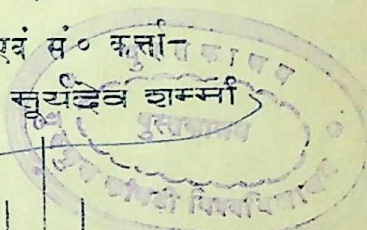 एवं सं० कर्त्ता-
सूर्यदेव शर्म्मा
पुस्तकालय
कांगड़ी विश्वविद्यालय